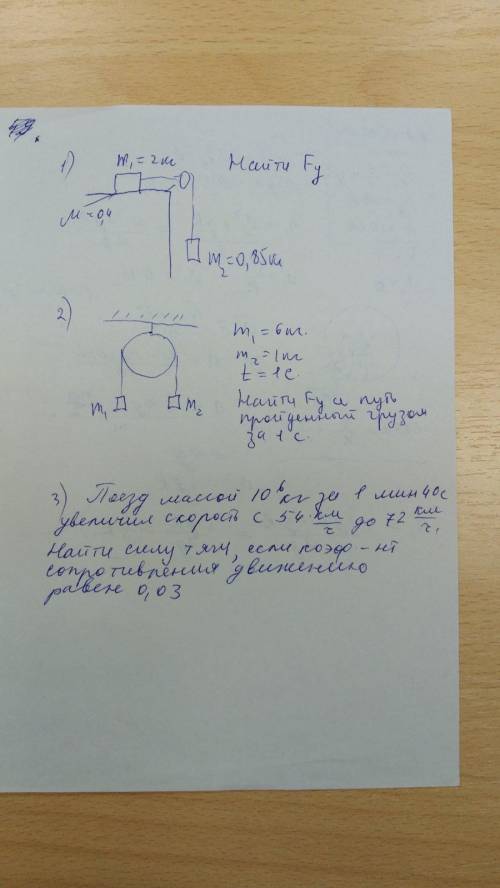 49.
1) m₁ = 2кг Найти Fу
μ = 0,4
m₂ = 0,85кг
2)
m₁ m₂
m₁ = 6кг.
m₂ = 1кг
t = 1 с.
Найти Fу и путь
пройденный грузом
за 1 с.
3) Поезд массой 10⁶ кг за 1 мин 40с
увеличил скорость с 54 км/ч до 72 км/ч.
Найти силу тяги, если коэф-нт
сопротивления движению
равен 0,03